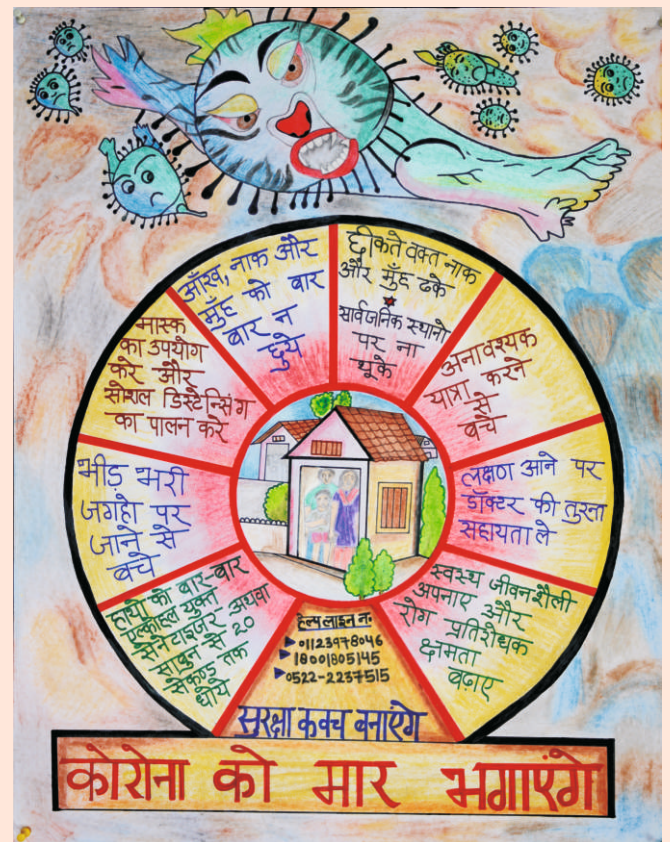 आँख, नाक और
मुँह को बार
बार न
छुये
छींकते वक्त नाक
और मुँह ढके
सार्वजनिक स्थानो
पर ना
थूके
अनावश्यक
यात्रा करने
से
बचे
लक्षण आने पर
डॉक्टर की तुरन्त
सहायता ले
स्वस्थ जीवन शैली
अपनाए और
रोग प्रतिरोधक
क्षमता
बढ़ाए
हेल्प लाइन नं०
01123978046
18001805145
0522-2237515
सुरक्षा कवच बनाएंगे
हाथो को बार-बार
एल्कोहल युक्त
सेनेटाइजर अथवा
साबुन से 20
सेकण्ड तक
धोये
भीड़ भरी
जगहो पर
जाने से
बचे
मास्क
का उपयोग
करे और
सोशल डिस्टेन्सिंग
का पालन करे
कोरोना को मार भगाएंगे